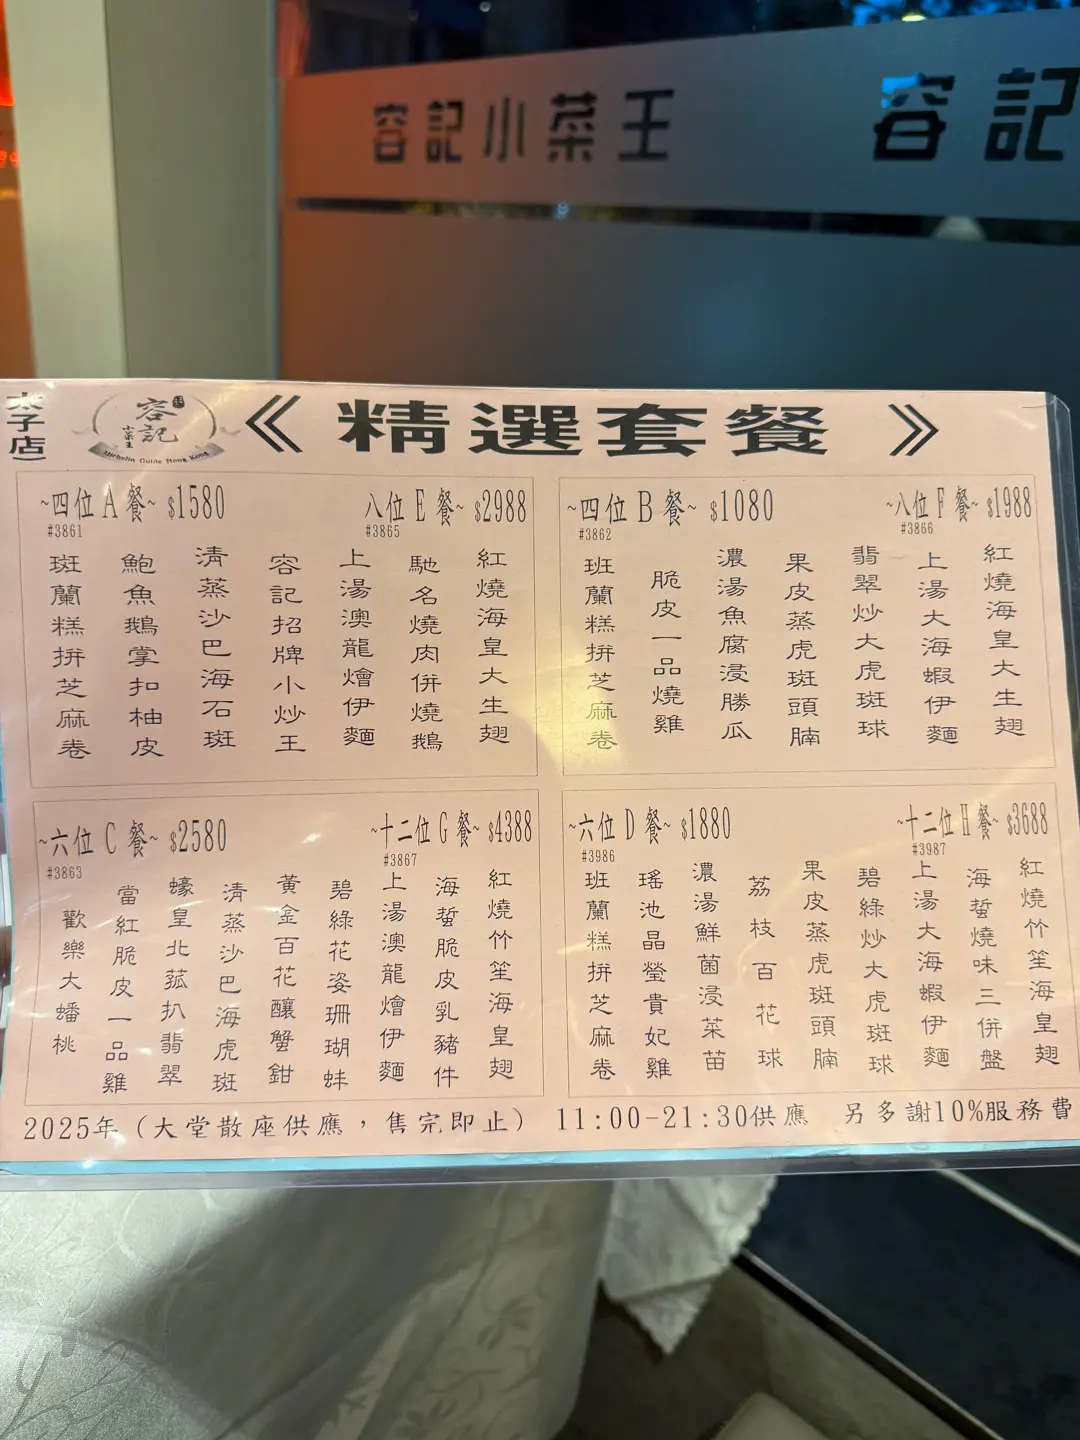 容記小菜王
容記
太子店
容記
小菜王
Michelin Guide Hong Kong
《精選套餐》
~四位A餐~ $1580
#3861
八位E餐~ $2988
#3865
紅燒海皇大生翅
馳名燒肉併燒鵝
上湯澳龍燴伊麵
容記招牌小炒王
清蒸沙巴海石斑
鮑魚鵝掌扣柚皮
斑蘭糕拼芝麻卷
~四位B餐~ $1080
#3862
~八位F餐~ $1988
#3866
紅燒海皇大生翅
上湯大海蝦伊麵
翡翠炒大虎斑球
果皮蒸虎斑頭腩
濃湯魚腐浸勝瓜
脆皮一品燒雞
班蘭糕拼芝麻卷
~六位C餐~ $2580
#3863
~十二位G餐~ $4388
#3867
紅燒竹笙海皇翅
海蜇脆皮乳豬件
上湯澳龍燴伊麵
碧綠花姿珊瑚蚌
黃金百花釀蟹鉗
清蒸沙巴海虎斑
蠔皇北菰扒翡翠
當紅脆皮一品雞
歡樂大蟠桃
~六位D餐~ $1880
#3986
~十二位H餐~ $3688
#3987
紅燒竹笙海皇翅
海蜇燒味三併盤
上湯大海蝦伊麵
碧綠炒大虎斑球
果皮蒸虎斑頭腩
荔枝百花球
濃湯鮮菌浸菜苗
瑤池晶瑩貴妃雞
班蘭糕拼芝麻卷
2025年（大堂散座供應，售完即止） 11:00-21:30供應 另多謝10%服務費